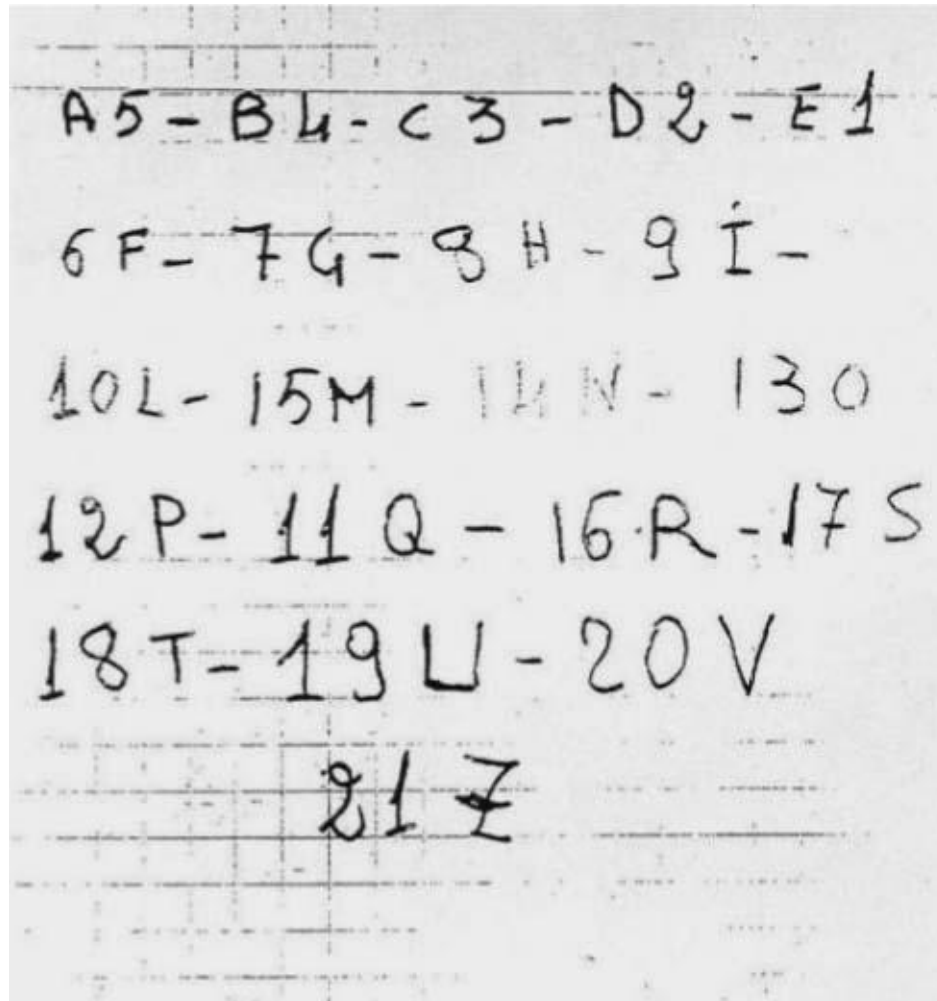 A5 - B4 - C3 - D2 - E1
6F - 7G - 8H - 9I -
10L - 15M - 14N - 13O
12P - 11Q - 16R - 17S
18T - 19U - 20V
21Z